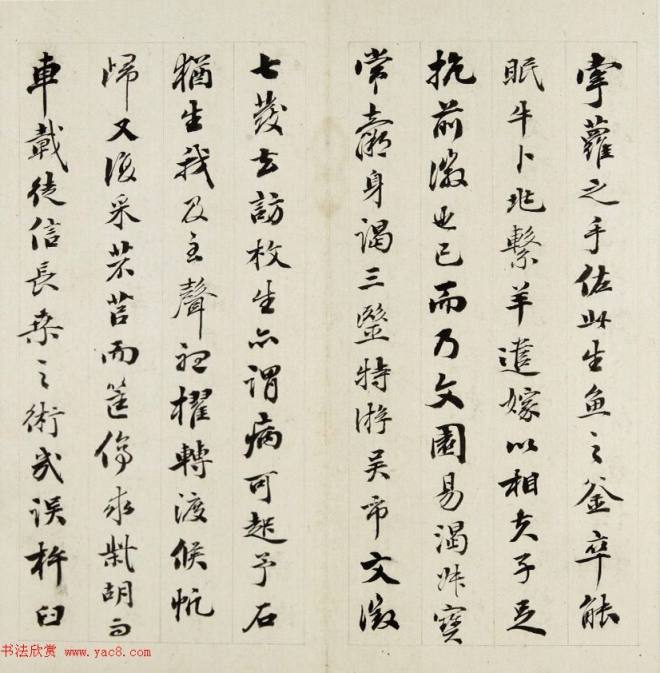 牽蘿之手佐此生魚之釜卒能
眠牛卜兆繫羊遣嫁以相夫子足
抗前徽也已而乃文園易渴寶
常身謁三毉特游吴市文徵
七發去訪枚生亦謂病可起予石
猶生我及聲櫂轉渡候帆
歸又復采芣苢而筐傷求胡
車戴徒信長桑之術或误杵臼
书法欣赏 www.yac8.com